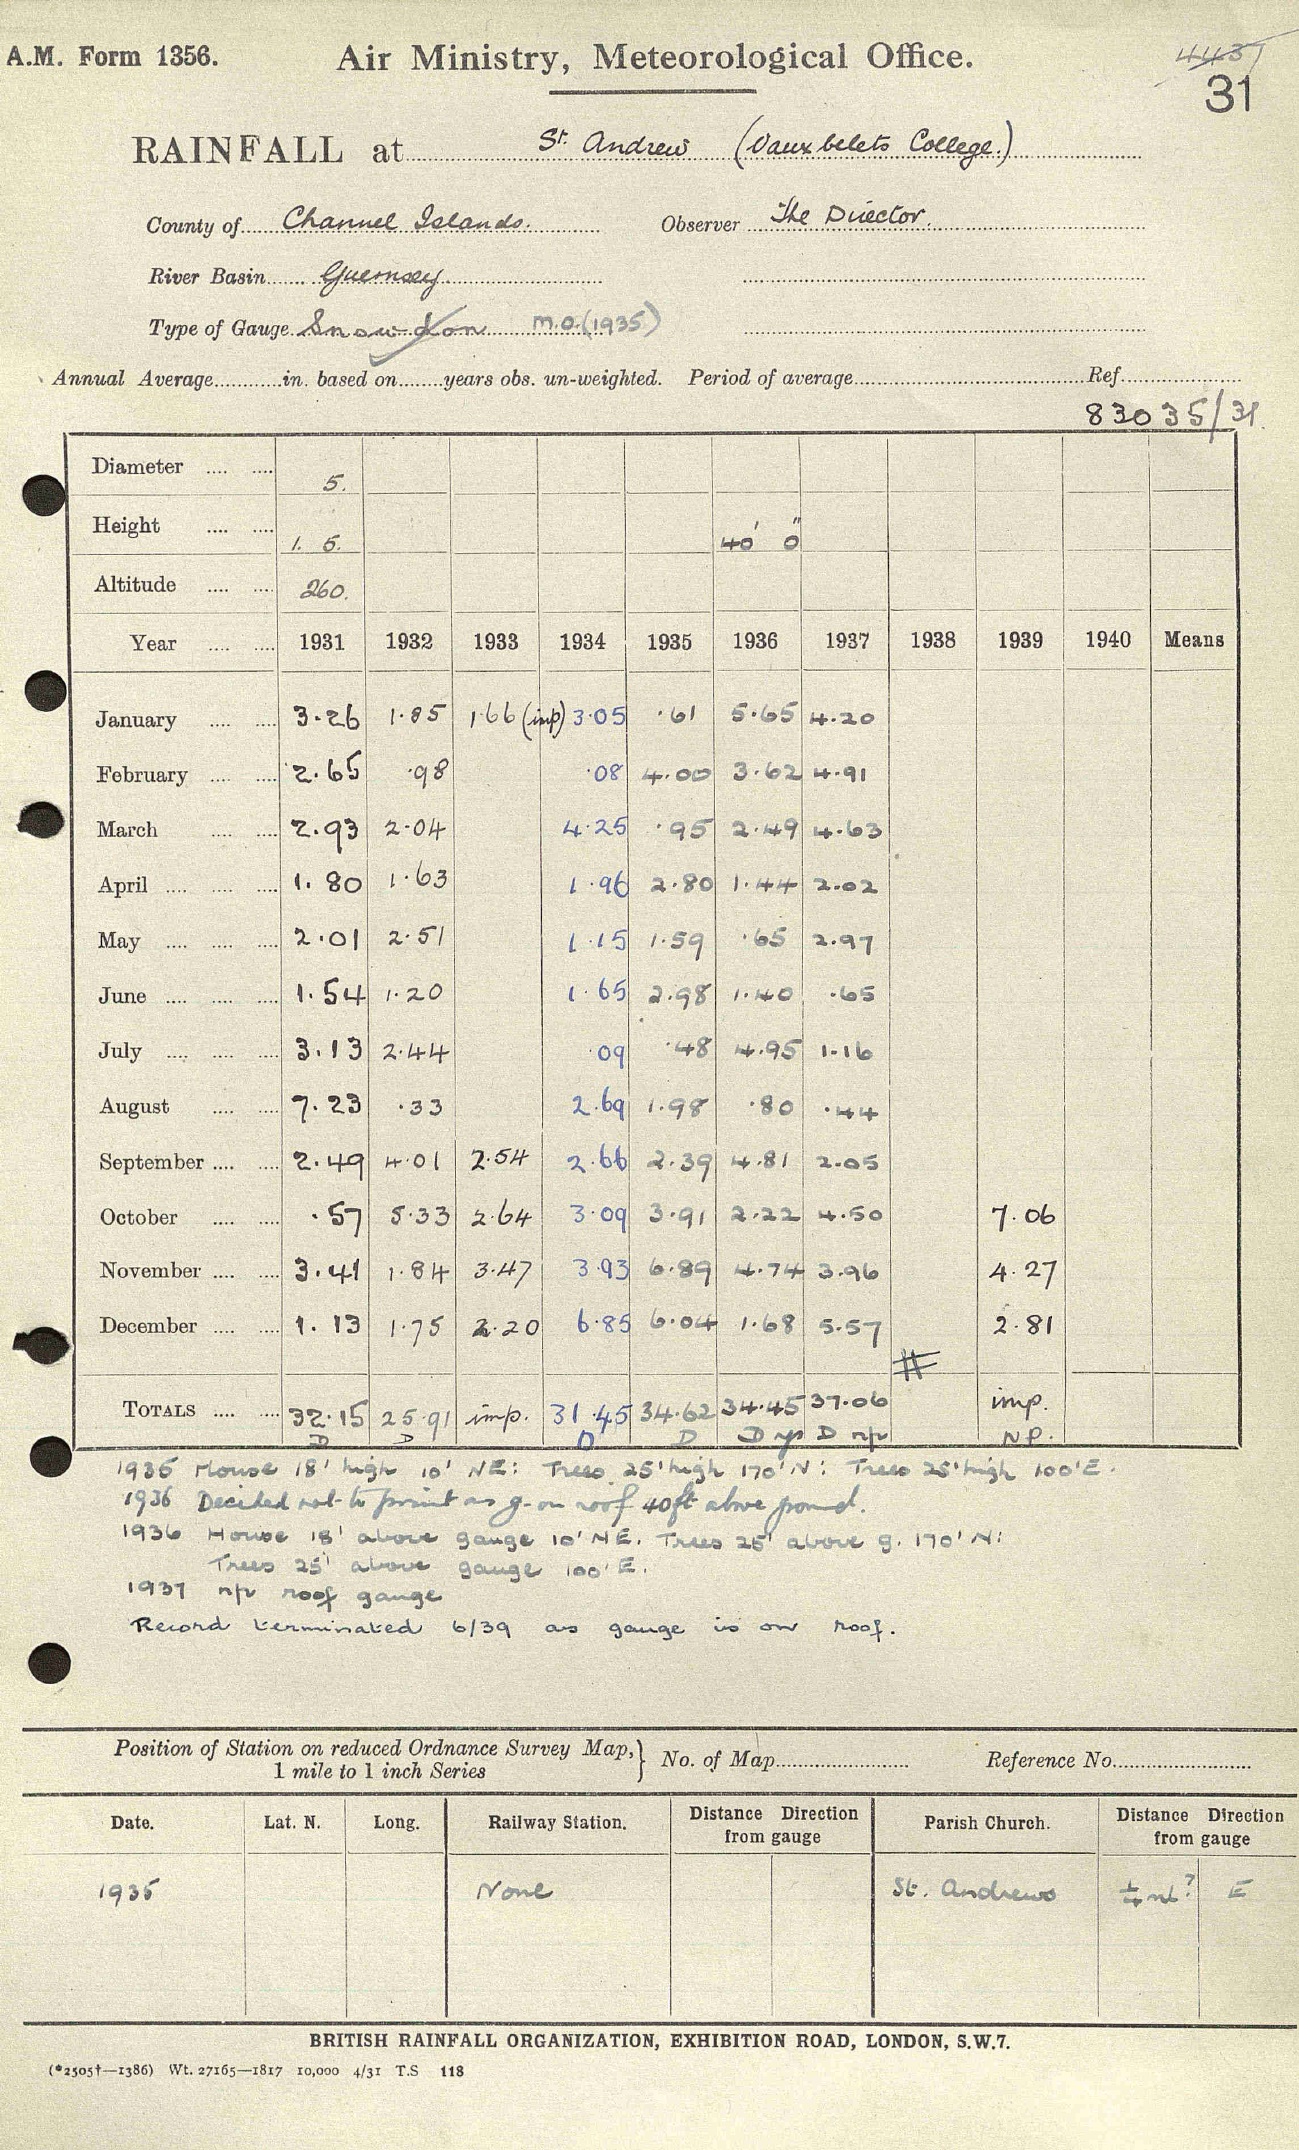 A.M. Form 1356.
Air Ministry, Meteorological Office.
4437
31
RAINFALL at St. Andrew (Vauxbelets College.)
County of Channel Islands. Observer The Director.
River Basin Guernsey
Type of Gauge Snowdon M.O. (1935)
Annual Average in. based on years obs. un-weighted. Period of average Ref.
83035/31.
Diameter 5.
Height 1. 5. 40' 0"
Altitude 260.
Year 1931 1932 1933 1934 1935 1936 1937 1938 1939 1940 Means
January 3.26 1.85 1.66 (imp) 3.05 .61 5.65 4.20
February 2.65 .98 .08 4.00 3.62 4.91
March 2.93 2.04 4.25 .95 2.49 4.63
April 1.80 1.63 1.96 2.80 1.44 2.02
May 2.01 2.51 1.15 1.59 .65 2.97
June 1.54 1.20 1.65 2.98 1.40 .65
July 3.13 2.44 .09 .48 4.95 1.16
August 7.23 .33 2.69 1.98 .80 .44
September 2.49 4.01 2.54 2.66 2.39 4.81 2.05
October .57 5.33 2.64 3.09 3.91 2.22 4.50 7.06
November 3.41 1.84 3.47 3.93 6.89 4.74 3.96 4.27
December 1.13 1.75 2.20 6.85 6.04 1.68 5.57 2.81
#
TOTALS 32.15 25.91 imp. 31.45 34.62 34.45 37.06 imp.
D D D D D D np NP.
1935 House 18' high 10' NE: Trees 25' high 170' N: Trees 25' high 100' E.
1936 Decided not to print as g. on roof 40ft above ground.
1936 House 18' above gauge 10' NE. Trees 25' above g. 170' N:
Trees 25' above gauge 100' E.
1937 np roof gauge
Record terminated 6/39 as gauge is on roof.
Position of Station on reduced Ordnance Survey Map, 1 mile to 1 inch Series } No. of Map Reference No.
Date. Lat. N. Long. Railway Station. Distance Direction from gauge Parish Church. Distance Direction from gauge
1935 None St. Andrews ¼ ml? E
BRITISH RAINFALL ORGANIZATION, EXHIBITION ROAD, LONDON, S.W.7.
(*2505†—1386) Wt. 27165—1817 10,000 4/31 T.S 118